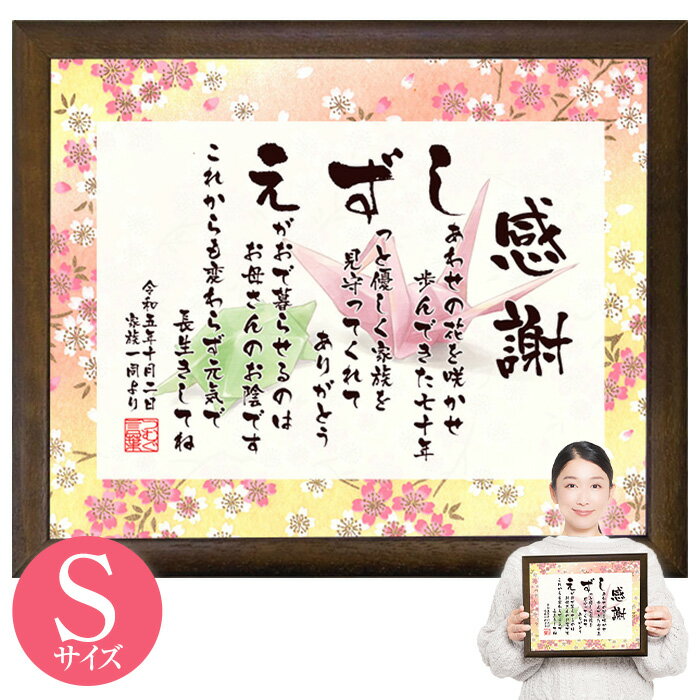 感謝
しあわせの花を咲かせ
歩んできた七十年
ずっと優しく家族を
見守ってくれて
ありがとう
えがおで暮らせるのは
お母さんのお陰です
これからも変わらず元気で
長生きしてね
令和五年十月二日
家族一同より
つむぐ
言葉
Sサイズ